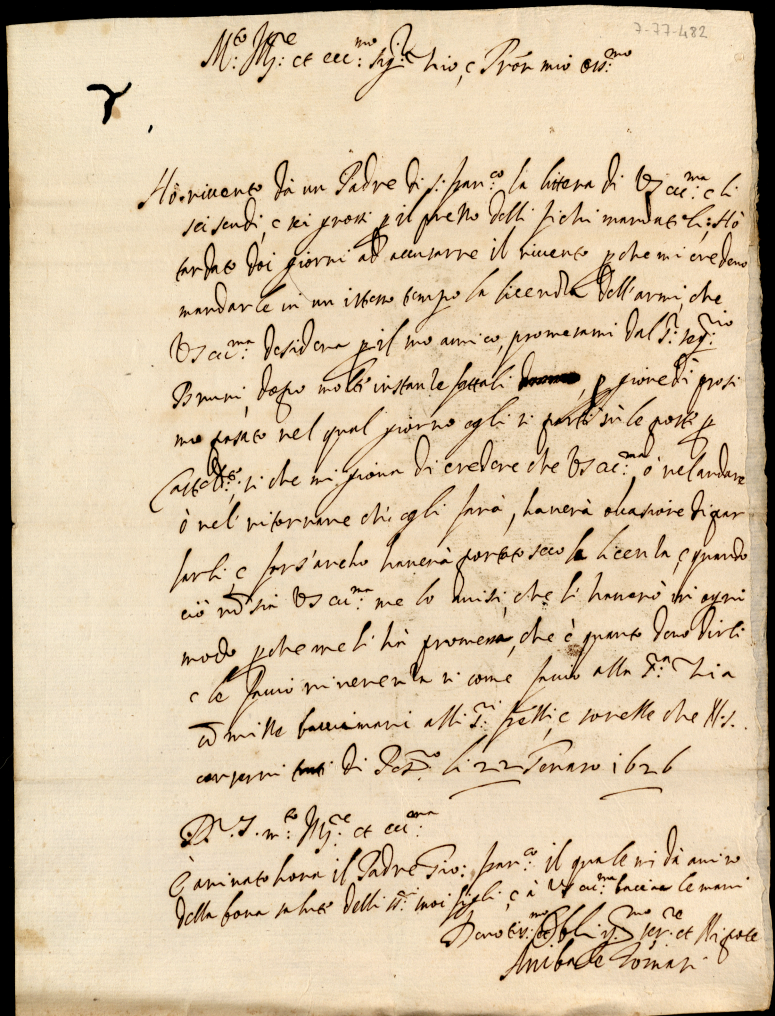 7-77-482
M:to Ill:re et ecc:mo Sig:r Zio, e Pron mio oss:mo
Hò riceuuto dà un Padre di S: Fran:co la littera di VS ecc:ma e li
sei scudi, e sei grossi p il prezzo delli fichi mandatili; Hò
tardato doi giorni ad accusarne il riceuuto pche mi credeuo
mandarle in un istesso tempo la licenza dell'armi, che
VS ecc:ma desidera p il suo amico, promessami dal S:r Seg:rio
Bruni, doppo molti instanze fattali, p giouedì prossi
mo passato nel qual giorno egli si partì sù le poste p
si che mi gioua di credere che VS ecc:ma ò nel andare
ò nel ritornare ch'egli farà, hauerà occasione di par
larli; e fors'anche hauerà portato seco la licenza, e quando
ciò nō sia VS ecc:ma me lo auisi, che li hauerò in ogni
modo pche me li hà promessa, che è quanto deuo dirli
e le faccio riuerenza si come faccio alla S:ra Zia
cō mille bacciamani alli S:ri fratelli, e sorelle che N.S.
conserui di Pes:ro li 22 Genaro 1626
D. V. S. m:to Ill:re et ecc:ma
È arriuato hora il Padre Gio: Fran:co il quale mi dà auiso
della bona salute delli S:ri suoi figli, e à VS ecc:ma baccia le mani
Deuotiss:mo et Oblig:mo ser:re et Nipote
Anibale Tomasi